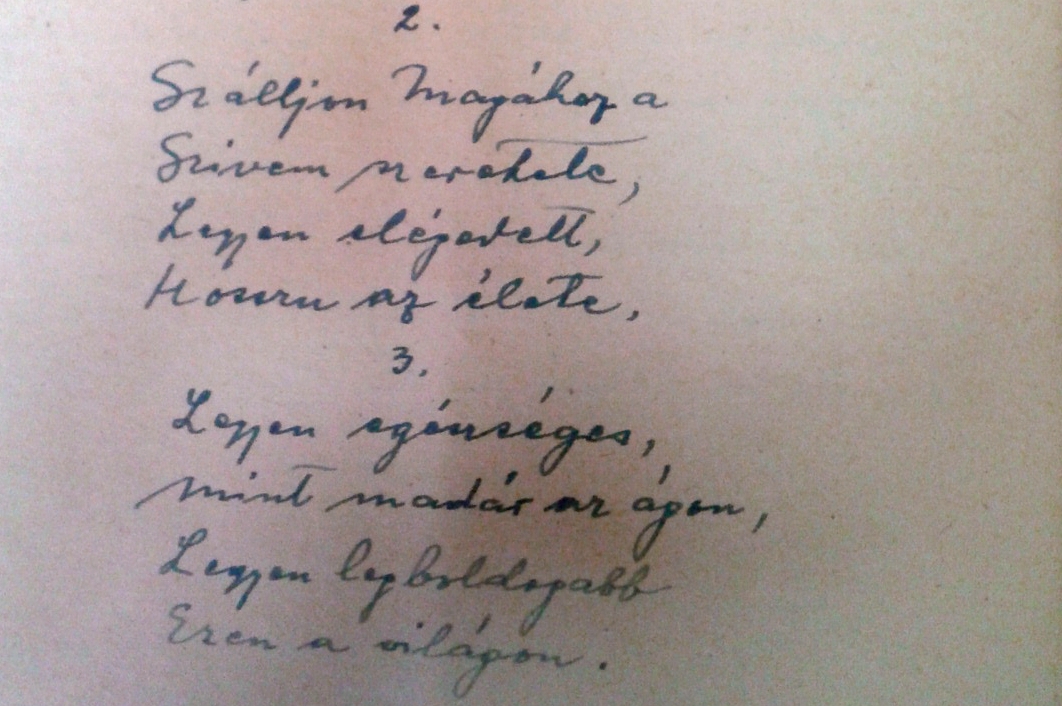 2.
Szálljon Magához a
Szivem szeretete,
Legyen elégedett,
Hosszu az élete,
3.
Legyen egészséges,
mint madár az ágon,
Legyen legboldogabb
Ezen a világon.